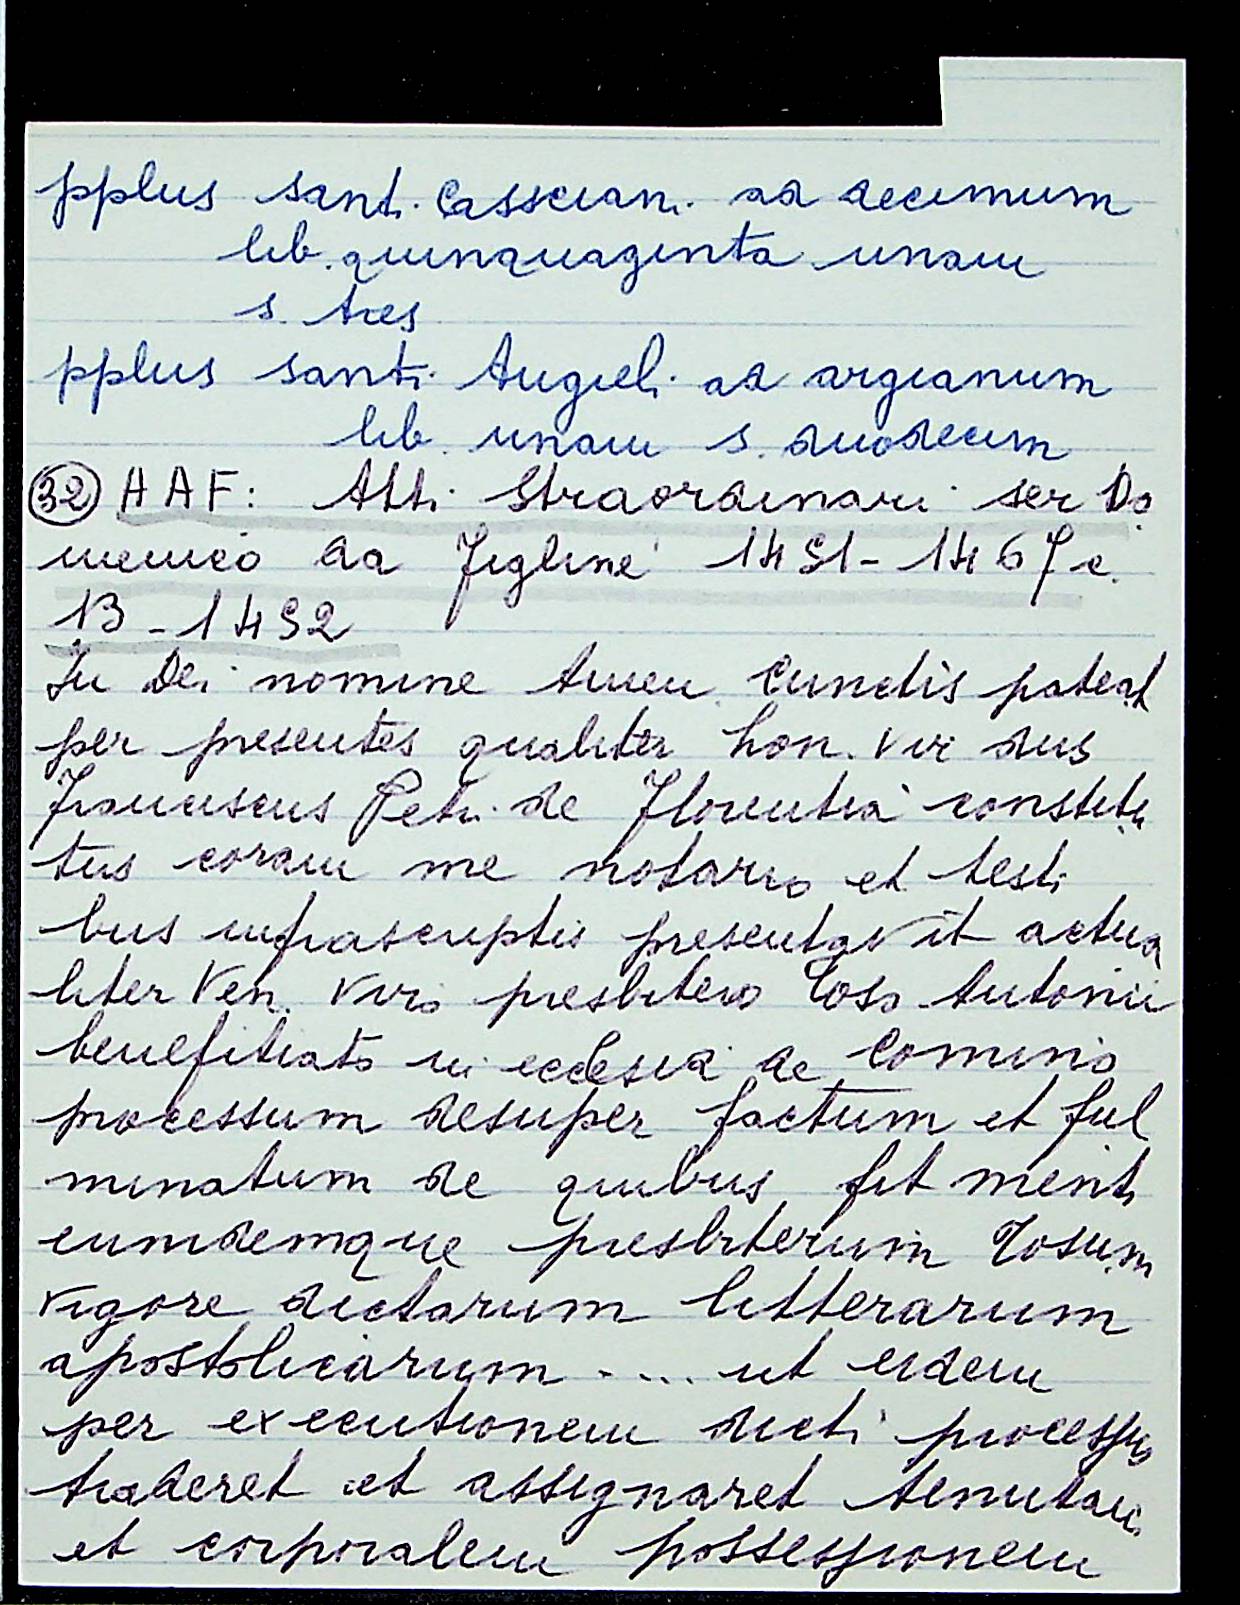 pplus santi Casscian. ad decimum
lib. quinquaginta unam
s. tres
pplus santi Angieli ad argianum
lib. unam s. duodecim
(32) AAF: Atti Straordinari ser Do
menico da Figline 1451-1467 c.
13 - 1452
In Dei nomine Amen. Cunctis pateat
per presentes qualiter hon. vir dus
Franciscus Petri de Florentia constitu
tus coram me notario et testi
bus infrascriptis presentavit actua
liter Ven. viro presbitero Antonii
benefitiato in ecclesia de
processum desuper factum et ful
minatum de quibus fit menti
eumdemque presbiterum
vigore dictarum litterarum
apostolicarum .... ut eidem
per executionem dicti processus
traderet et assignaret tenutam
et corporalem possessionem